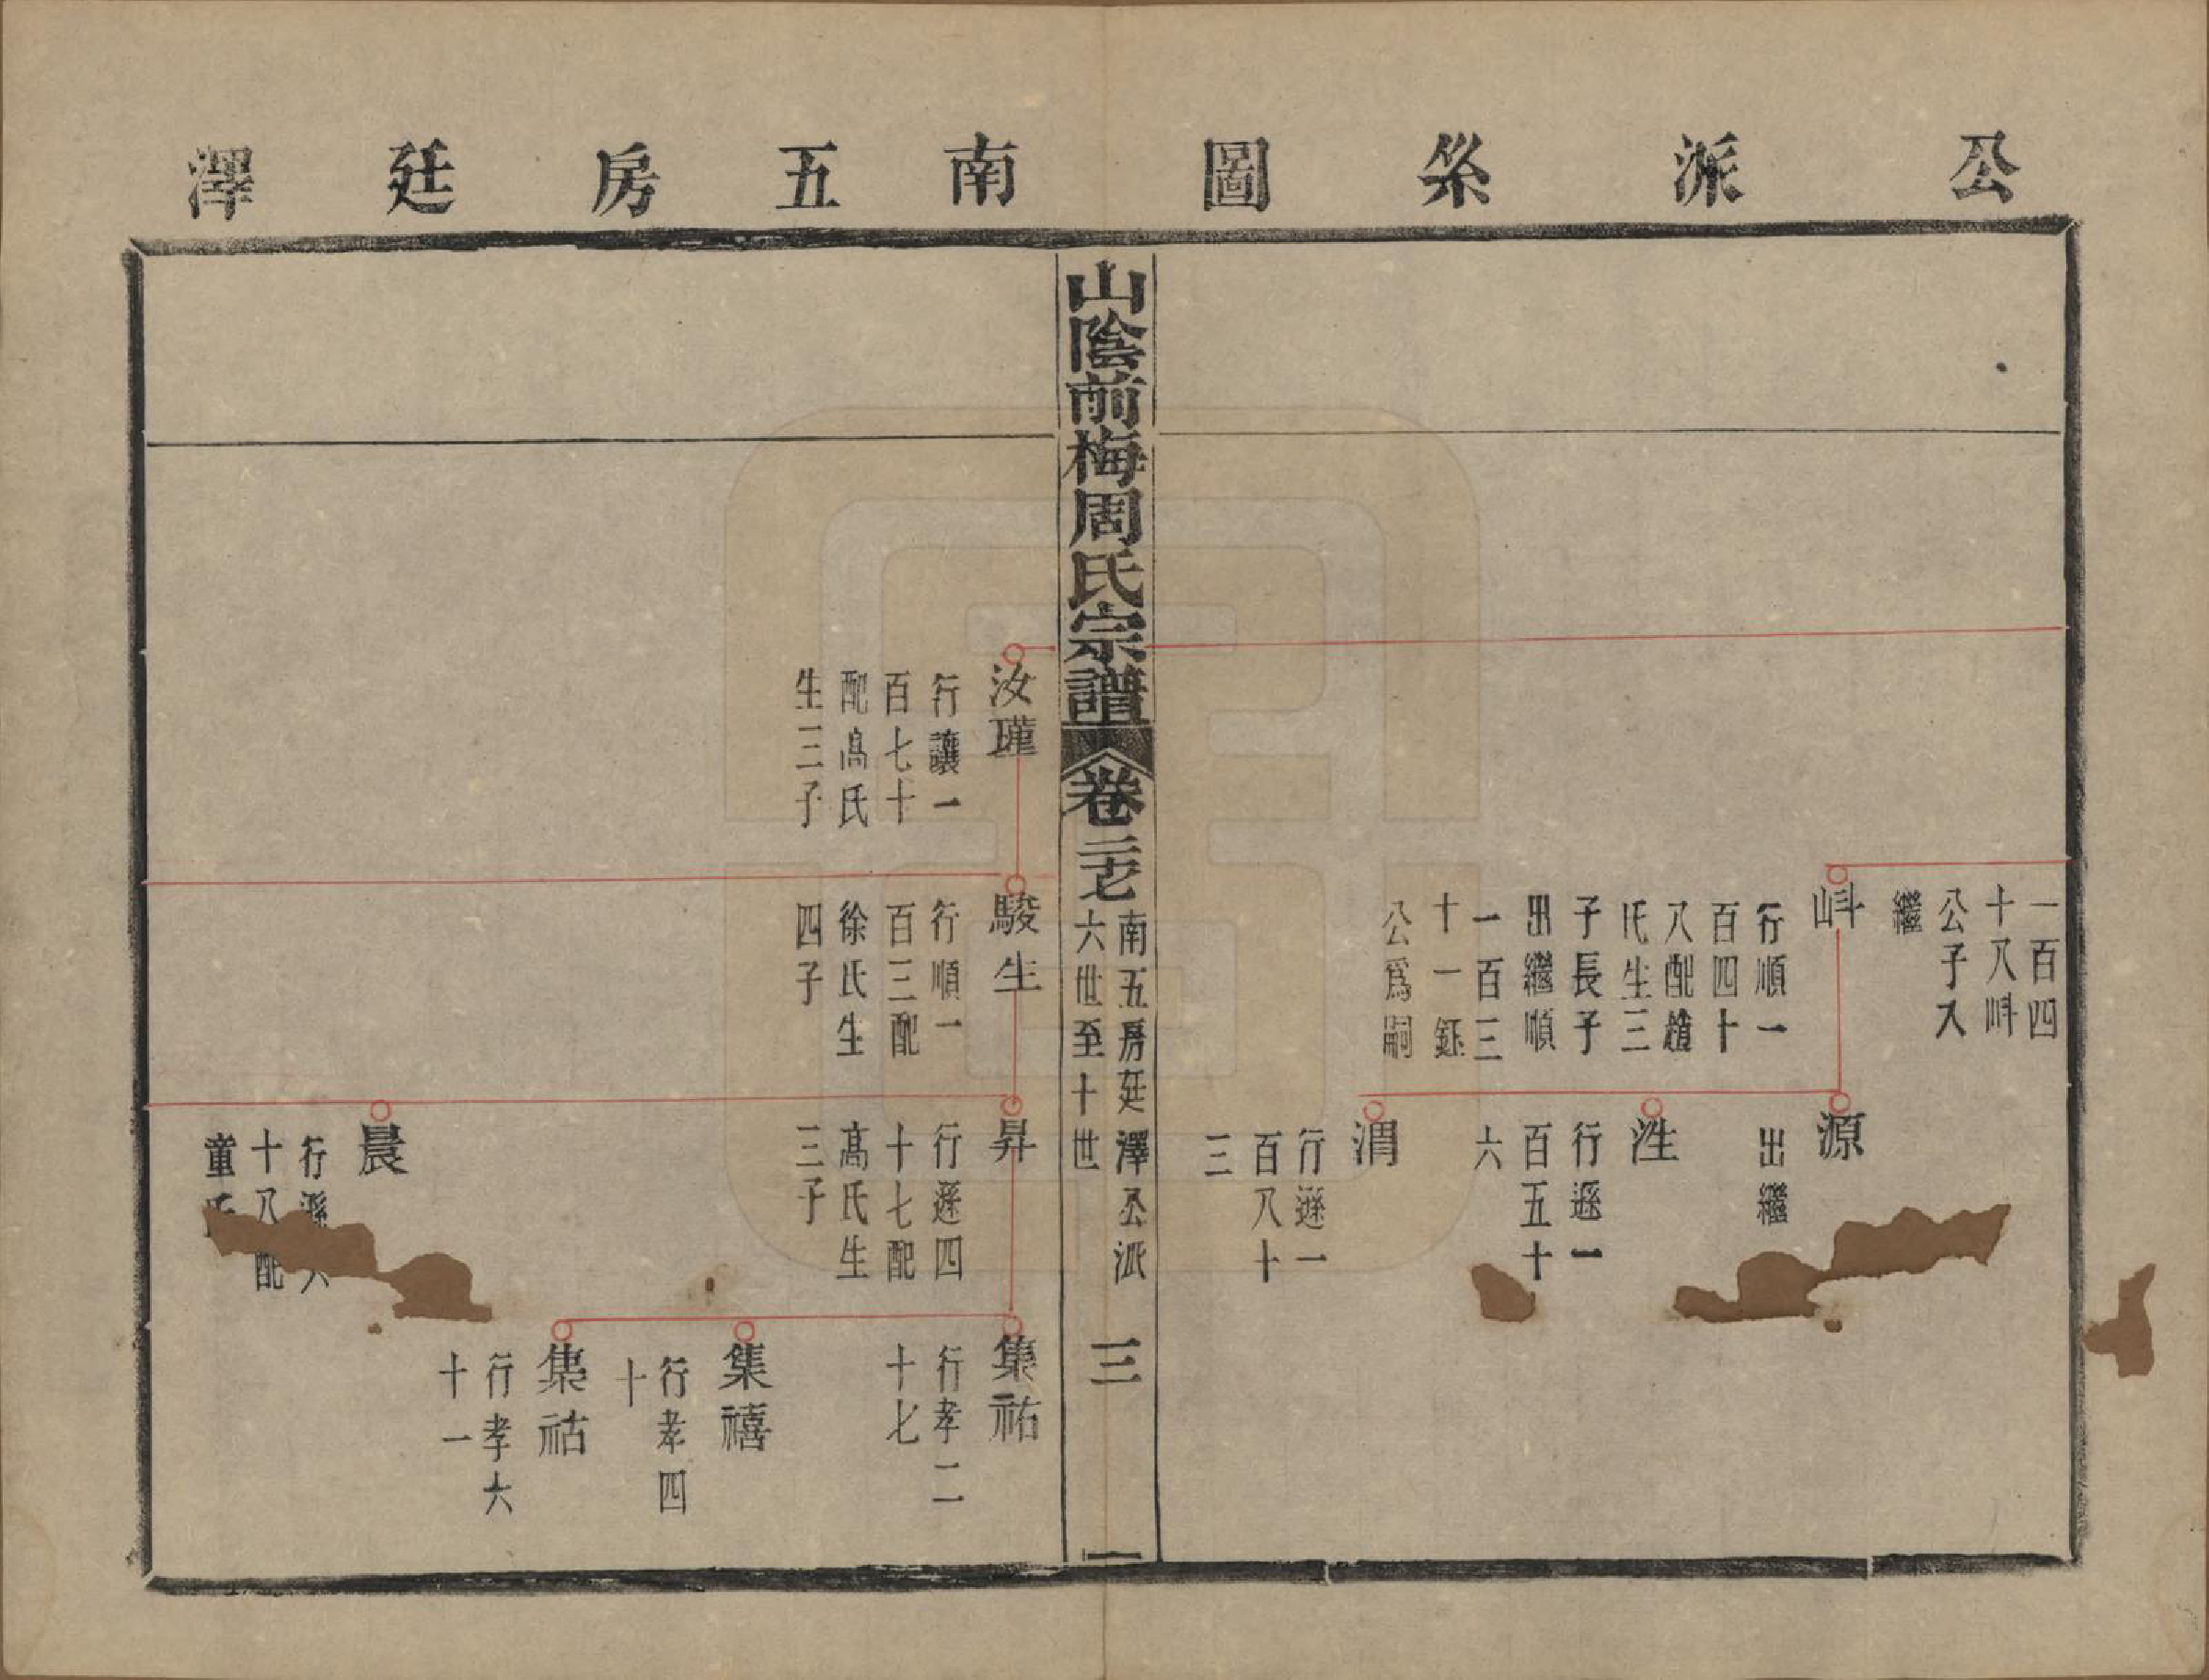 公派系圖
南五房廷澤
一百四
十八㟁
公子入
繼
行順一
百四十
八配趙
氏生三
子長子
出繼順
一百三
十一鈺
公爲嗣
源
出繼
泩
行遜一
百五十
六
渭
行遜一
百八十
三
山陰前梅周氏宗譜
卷二七
南五房廷澤公派
六世至十世
三
汝瓘
行讓一
百七十
配高氏
生三子
駿生
行順一
百三配
徐氏生
四子
昇
行遜四
十七配
高氏生
三子
集祐
行孝二
十七
集禧
行孝四
十
集祜
行孝六
十一
晨
行遜六
十八配
童氏